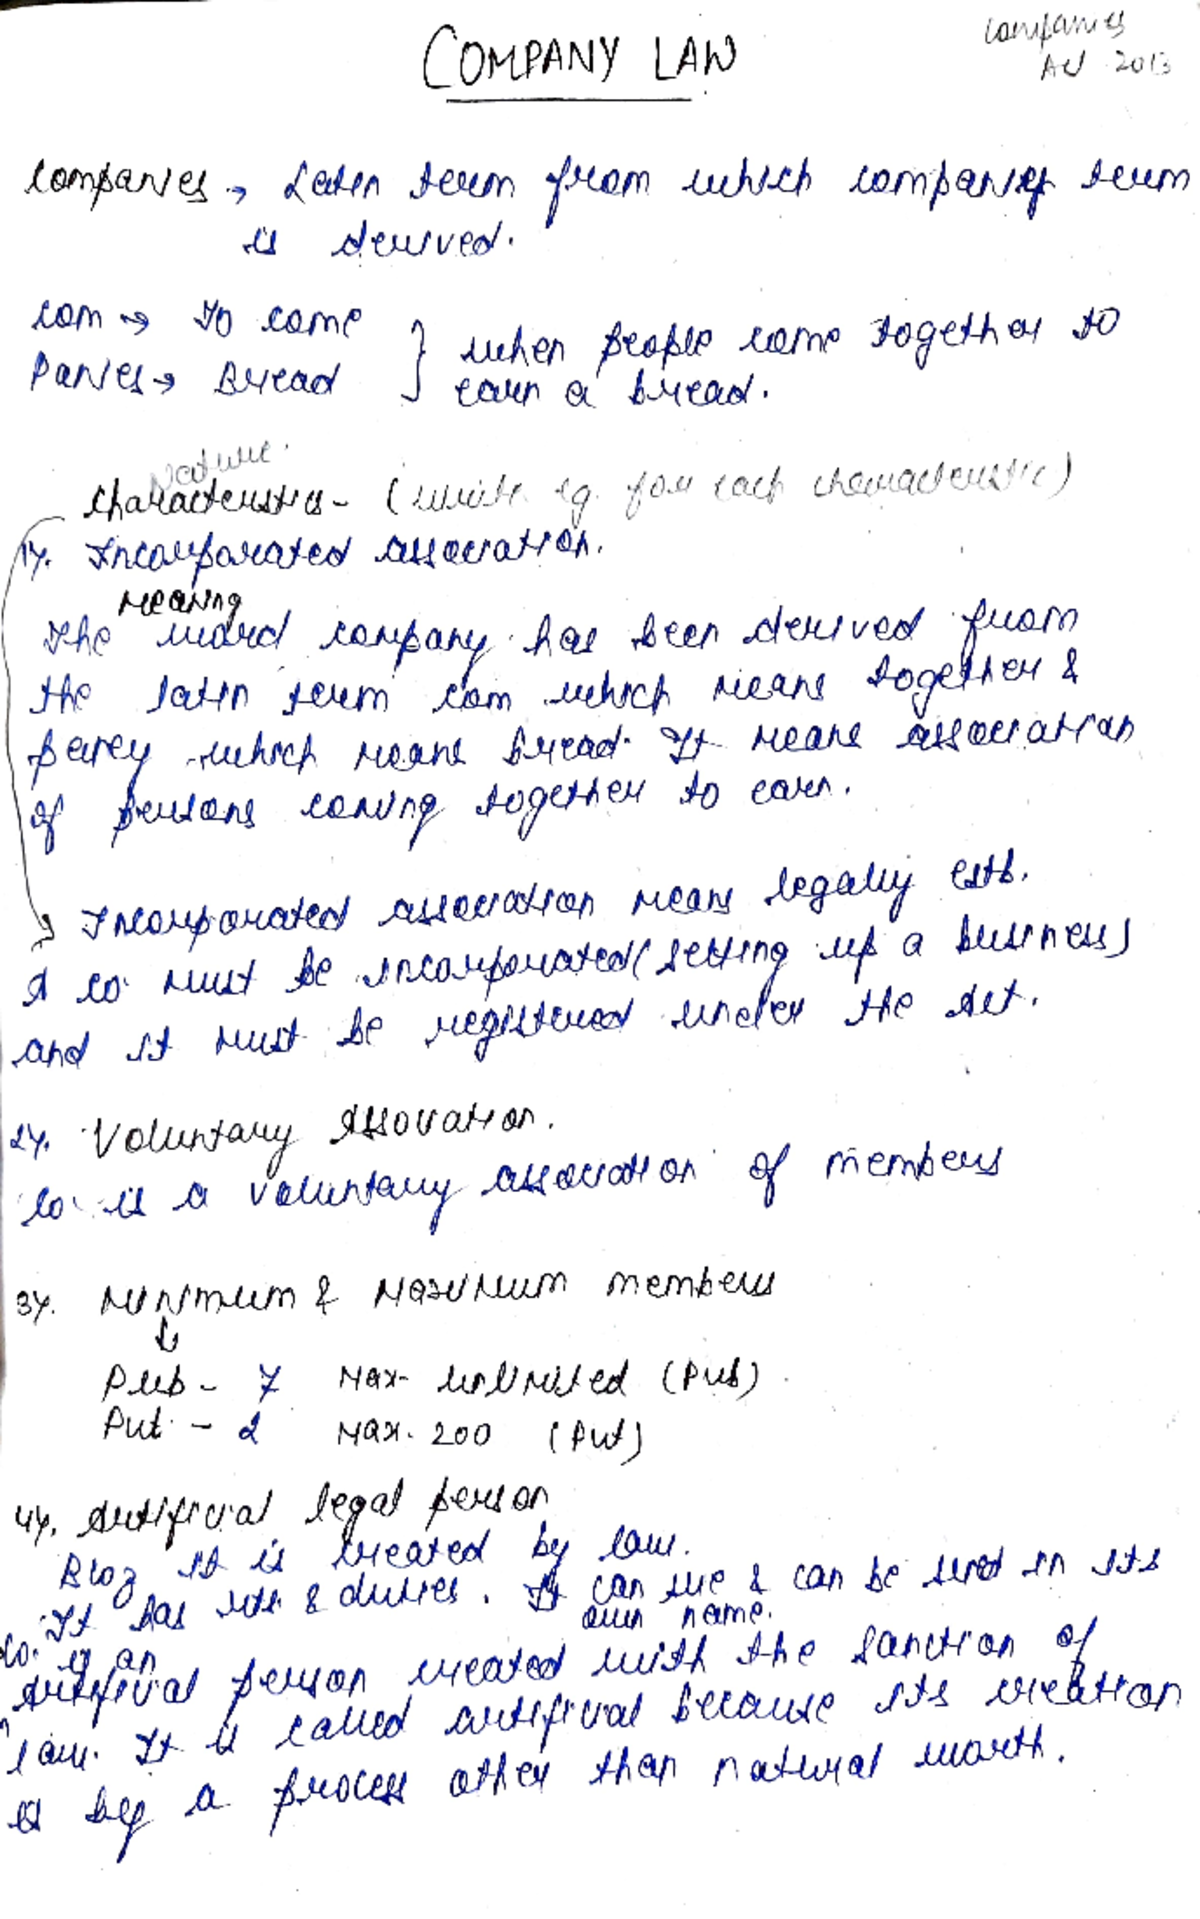 COMPANY LAW
Companies
Act 2013
Companies → Latin term from which companies term
is derived.
Com → To come
Panies → Bread
} when people come together to
earn a bread.
Nature
Characteristics - (write eg. for each characteristic)
1). Incorporated association.
Meaning
The word company has been derived from
the latin term com which means together &
paney which means bread. It means association
of persons coming together to earn.
→ Incorporated association means legally estb.
A co. must be incorporated (setting up a business)
and it must be registered under the Act.
2). Voluntary Association.
Co. is a voluntary association of members
3). Minimum & Maximum members
↓
Pub - 7 Max- unlimited (Pub)
Pvt. - 2 Max. 200 (Pvt)
4). Artificial legal person
Bcoz it is created by law.
It has rts & duties. It can sue & can be sued in its
own name.
Co. is an
Artificial person created with the sanction of
law. It is called artificial because its creation
is by a process other than natural worth.